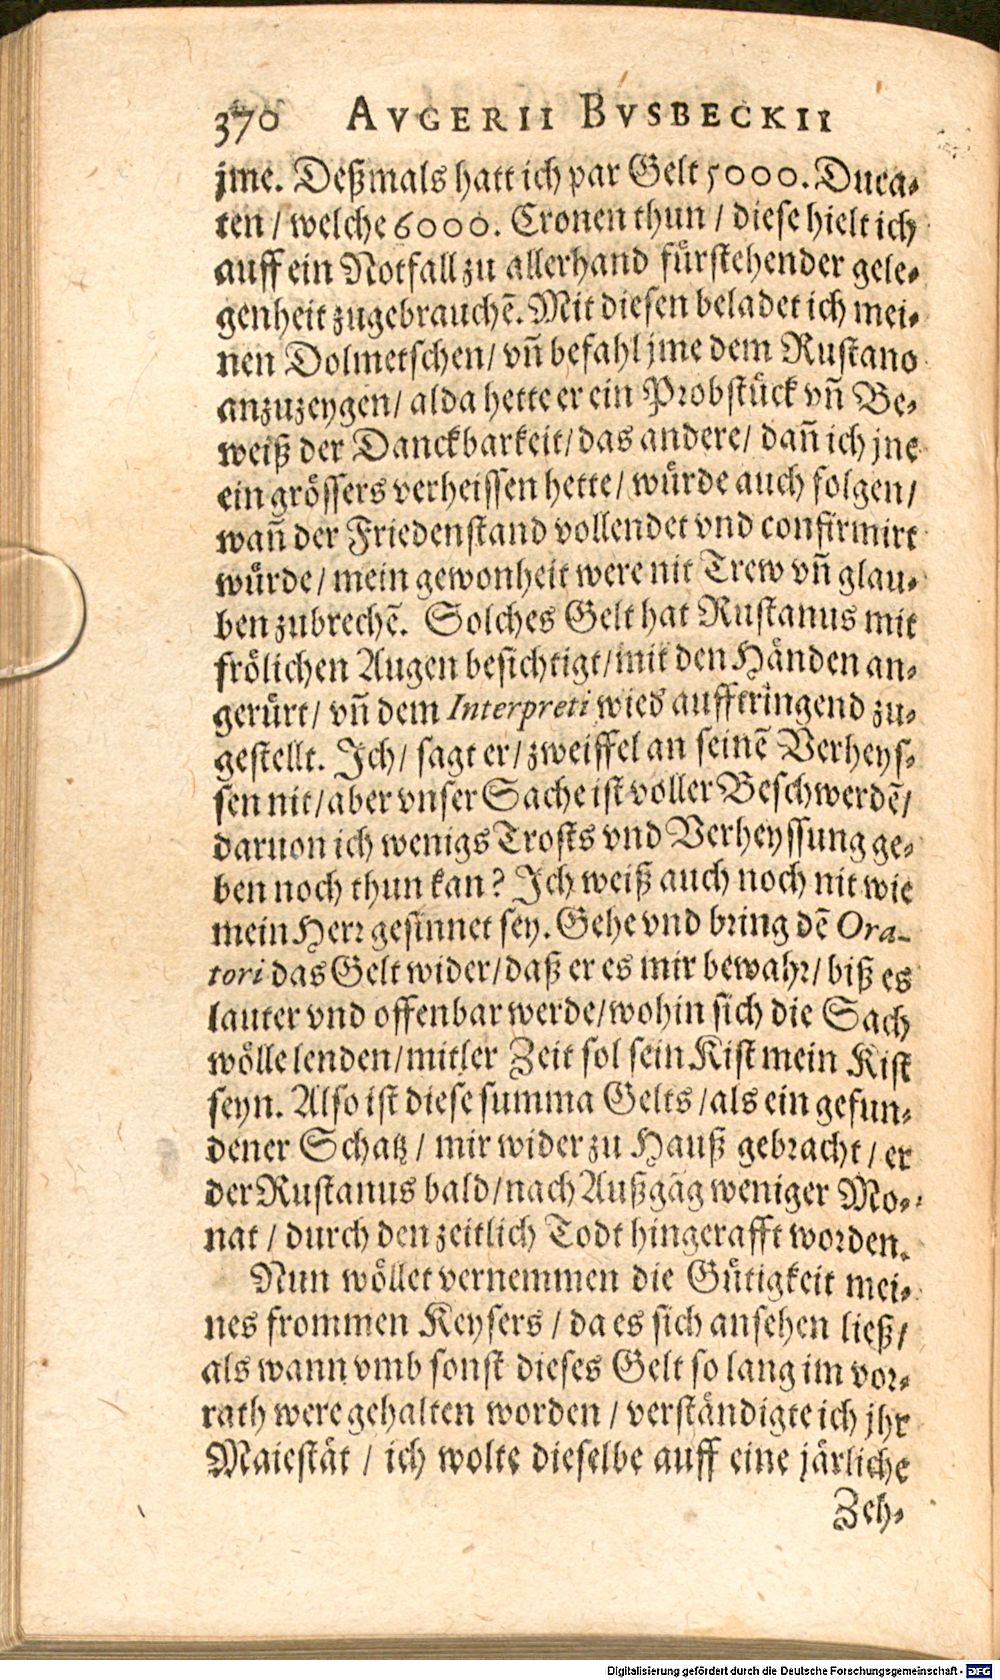 370 AVGERII BVSBECKII
jme. Deßmals hatt ich par Gelt 5000. Duca-
ten / welche 6000. Cronen thun / diese hielt ich
auff ein Notfall zu allerhand fürstehender gele-
genheit zugebrauchẽ. Mit diesen beladet ich mei-
nen Dolmetschen / vñ befahl jme dem Rustano
anzuzeygen / alda hette er ein Probstück vñ Be-
weiß der Danckbarkeit / das andere / dañ ich jne
ein grössers verheissen hette / würde auch folgen /
wañ der Friedenstand vollendet vnd confirmirt
würde / mein gewonheit were nit Trew vñ glau-
ben zubrechẽ. Solches Gelt hat Rustanus mit
frölichen Augen besichtigt / mit den Händen an-
gerürt / vñ dem Interpreti wied aufftringend zu-
gestellt. Ich / sagt er / zweiffel an seinẽ Verheys-
sen nit / aber vnser Sache ist voller Beschwerdẽ /
daruon ich wenigs Trosts vnd Verheyssung ge-
ben noch thun kan? Ich weiß auch noch nit wie
mein Herr gesinnet sey. Gehe vnd bring dẽ Ora-
tori das Gelt wider / daß er es mir bewahr / biß es
lauter vnd offenbar werde / wohin sich die Sach
wölle lenden / mitler Zeit sol sein Kist mein Kist
seyn. Also ist diese summa Gelts / als ein gefun-
dener Schatz / mir wider zu Hauß gebracht / er
der Rustanus bald / nach Außgãg weniger Mo-
nat / durch den zeitlich Todt hingerafft worden.
Nun wöllet vernemmen die Gütigkeit mei-
nes frommen Keysers / da es sich ansehen ließ /
als wann vmb sonst dieses Gelt so lang im vor-
rath were gehalten worden / verständigte ich jhr
Maiestät / ich wolte dieselbe auff eine järliche
Zeh-
Digitalisierung gefördert durch die Deutsche Forschungsgemeinschaft - DFG